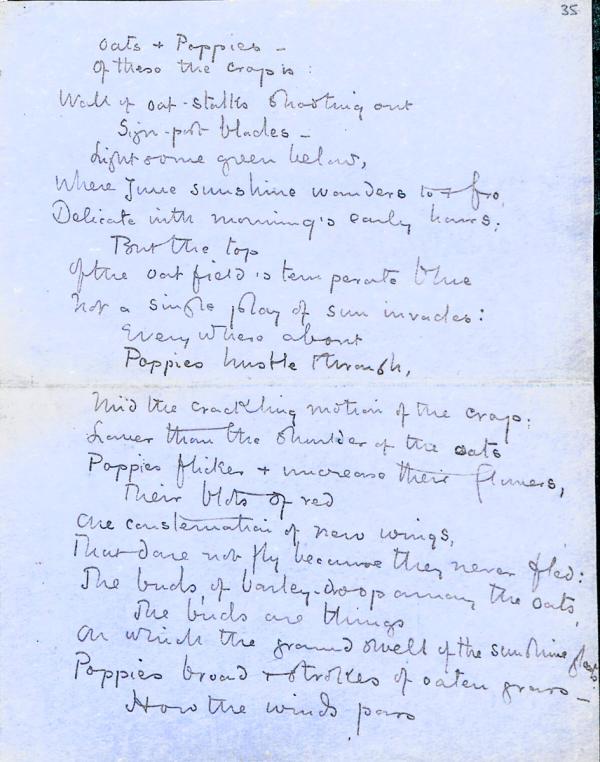 35
Oats + Poppies -
Of these the crop is:
Wall of oat-stalks shooting out
Sign-post blades -
Lightsome green below,
Where June sunshine wanders to + fro,
Delicate with morning's early hours;
But the top
Of the oat field is temperate blue
Not a single play of sun invades:
Everywhere about
Poppies hustle through,
Mid the crackling motion of the crop:
Lower than the shoulder of the oats
Poppies flicker + increase their flowers,
Their blots of red
Are consternation of new wings,
That dare not fly because they never fled:
The buds, of barley-droop among the oats,
The buds are things
On which the ground swell of the sunshine plays:
Poppies broad + strokes of oaten grass -
How the winds pass